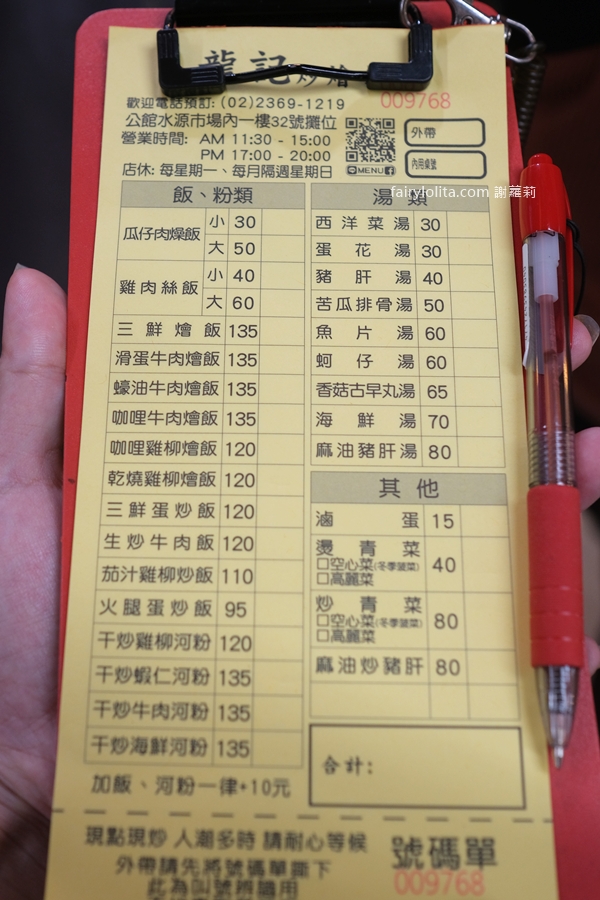 龍記炒燴
歡迎電話預訂: (02)2369-1219
009768
公館水源市場內一樓32號攤位
營業時間: AM 11:30 - 15:00
PM 17:00 - 20:00
店休: 每星期一、每月隔週星期日
MENU
外帶
內用桌號
fairylolita.com 謝蘿莉
飯、粉類
瓜仔肉燥飯 小 30
大 50
雞肉絲飯 小 40
大 60
三鮮燴飯 135
滑蛋牛肉燴飯 135
蠔油牛肉燴飯 135
咖哩牛肉燴飯 135
咖哩雞柳燴飯 120
乾燒雞柳燴飯 120
三鮮蛋炒飯 120
生炒牛肉飯 120
茄汁雞柳炒飯 110
火腿蛋炒飯 95
干炒雞柳河粉 120
干炒蝦仁河粉 135
干炒牛肉河粉 135
干炒海鮮河粉 135
加飯、河粉一律+10元
湯類
西洋菜湯 30
蛋花湯 30
豬肝湯 40
苦瓜排骨湯 50
魚片湯 60
蚵仔湯 60
香菇古早丸湯 65
海鮮湯 70
麻油豬肝湯 80
其他
滷蛋 15
燙青菜 40
□空心菜(冬季菠菜)
□高麗菜
炒青菜 80
□空心菜(冬季菠菜)
□高麗菜
麻油炒豬肝 80
合計:
現點現炒 人潮多時 請耐心等候
外帶請先將號碼單撕下
此為叫號辨識用
號碼單
009768